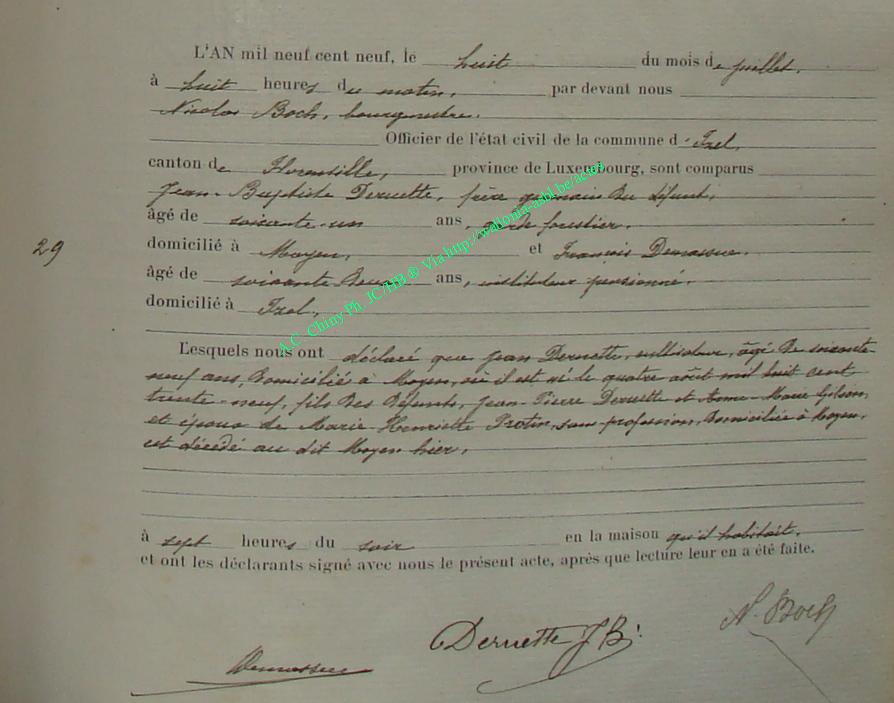 L'AN mil neuf cent neuf, le huit du mois de juillet,
à huit heures du matin, par devant nous
Nicolas Boch, bourgmestre,
Officier de l'état civil de la commune d'Izel,
canton de Florenville, province de Luxembourg, sont comparus
Jean-Baptiste Deruette, frère germain du défunt,
âgé de soixante-un ans, garde forestier,
29
domicilié à Moyen, et François Demasseur,
âgé de soixante deux ans, instituteur pensionné,
domicilié à Izel,
Lesquels nous ont déclaré que Jean Deruette, cultivateur, âgé de soixante-
neuf ans, domicilié à Moyen, où il est né le quatre août mil huit cent
trente-neuf, fils des défunts, Jean-Pierre Deruette et Anne-Marie Gilson,
et époux de Marie-Henriette Protin, sans profession, domiciliée à Moyen,
est décédé au dit Moyen hier,
à sept heures du soir en la maison qu'il habitait,
et ont les déclarants signé avec nous le présent acte, après que lecture leur en a été faite.
N. Boch
Deruette J B
A.C. Chiny Ph. JC/HB ® Via http://wallonia-asbl.be/actes